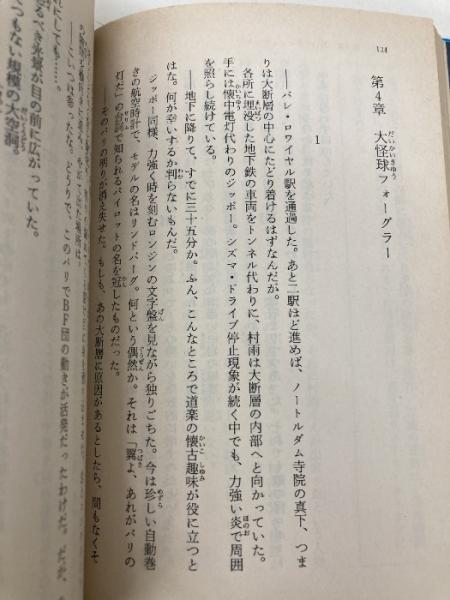 128
第4章　大怪球フォーグラー
1
――パレ・ロワイヤル駅を通過した。あと二駅ほど進めば、ノートルダム寺院の真下、つま
りは大断層の中心にたどり着けるはずなんだが。
各所に埋没した地下鉄の車両をトンネル代わりに、村雨は大断層の内部へと向かっていた。
手には懐中電灯代わりのジッポー。シズマ・ドライブ停止現象が続く中でも、力強い炎で周囲
を照らし続けている。
――地下に降りて、すでに三十五分か。ふん、こんなところで道楽の懐古趣味が役に立つと
はな。何が幸いするか判らないもんだ。
ジッポー同様、力強く時を刻むロンジンの文字盤を見ながら独りごちた。今は珍しい自動巻
きの航空時計で、モデルの名はリンドバーグ。何という偶然か。それは「翼よ、あれがパリの
灯だ」の台詞で知られるパイロットの名を冠したものだった。
――そのパリの明りが消え失せた。もしも、あの大断層に原因があるとしたら、間もなくそ
にしても……。
るべき光景が目の前に広がっていた。
つもない規模の大空洞